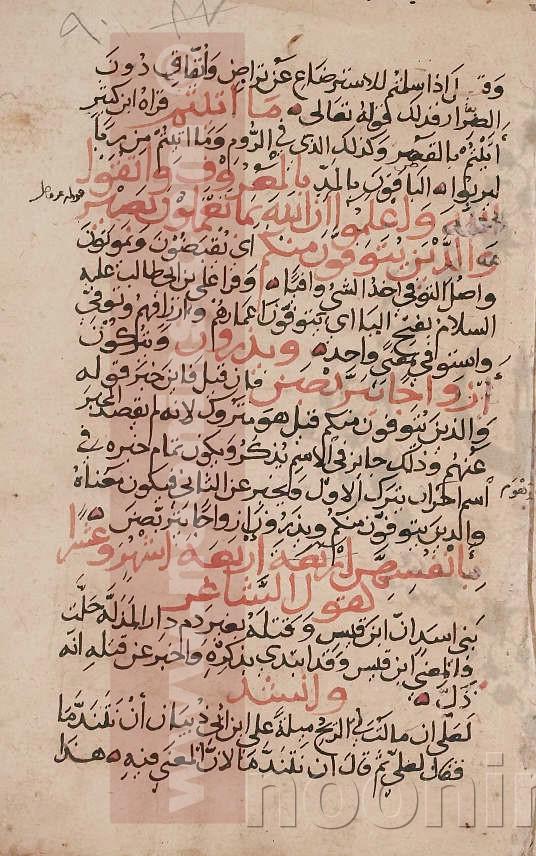 وقيل اذا سلمتم للاسترضاع عن تراض واتفاق دون
الضرار فذلك قوله تعالى ما اتيتم قراه ابن كثير
اتيتم بالقصر وكذلك الذي في الروم وما اتيتم من ربا
ليربوا الباقون بالمد بالمعروف واتقوا
الله واعلموا ان الله بما تعملون بصير
والذين يتوفون منكم اي يقبضون ويموتون
واصل التوفي اخذ الشي وافيا وقرا علي بن ابي طالب عليه
السلام بفتح اليا اي يتوفون اعمارهم وارزاقهم وتوفي
واستوفي بمعنى واحد ويذرون ويتركون
ازواجا يتربصن فان قيل فاين خبر قوله
والذين يتوفون منكم قيل هو متروك لانه لم يقصد الخبر
عنهم وذلك جايز في الاسم يذكر ويكون تمام خبره في
اسم اخر ان يترك الاول ويخبر عن الثاني فيكون معناه
والذين يتوفون منكم ويذرون ازواجا يتربصن
بانفسهن اربعة اشهر وعشرا
كقول الشاعر
بني اسد ان ابن قيس وقتله بغير دم دار المذلة حلت
والمعنى ابن قيس وقد ابتدي بذكره والخبر عن قتله انه
ذل
وانشد
لعلي ان مالت بي الريح ميلة على ابن ابي ذبيان ان يتندما
فقال لعلي ثم قال ان يتندما لان المعنى فيه هذا